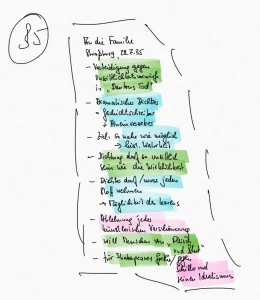 35
An die Familie
Straßburg, 28.7.35
- Verteidigung gegen
Unsittlichkeitsvorwurf
in "Dantons Tod"
- Dramatischer Dichter
= Geschichtschreiber
+
- Ziel: so nahe wie möglich
→ hist. Wahrheit
- Dichtung darf so unsittlich
sein wie die Wirklichkeit
- Dichter darf / muss jeden
Stoff nehmen
→ Möglichkeit des Lernens
- Ablehnung jeder
künstlerischen Verschönerung
- will Menschen von "Fleisch
und Blut"
- für Shakespeare, Goethe / gegen
Schiller und
seinen Idealismus